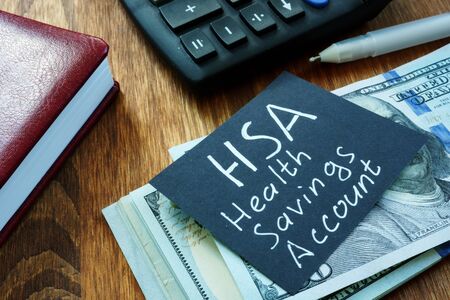 HSA
Health
Savings
Account